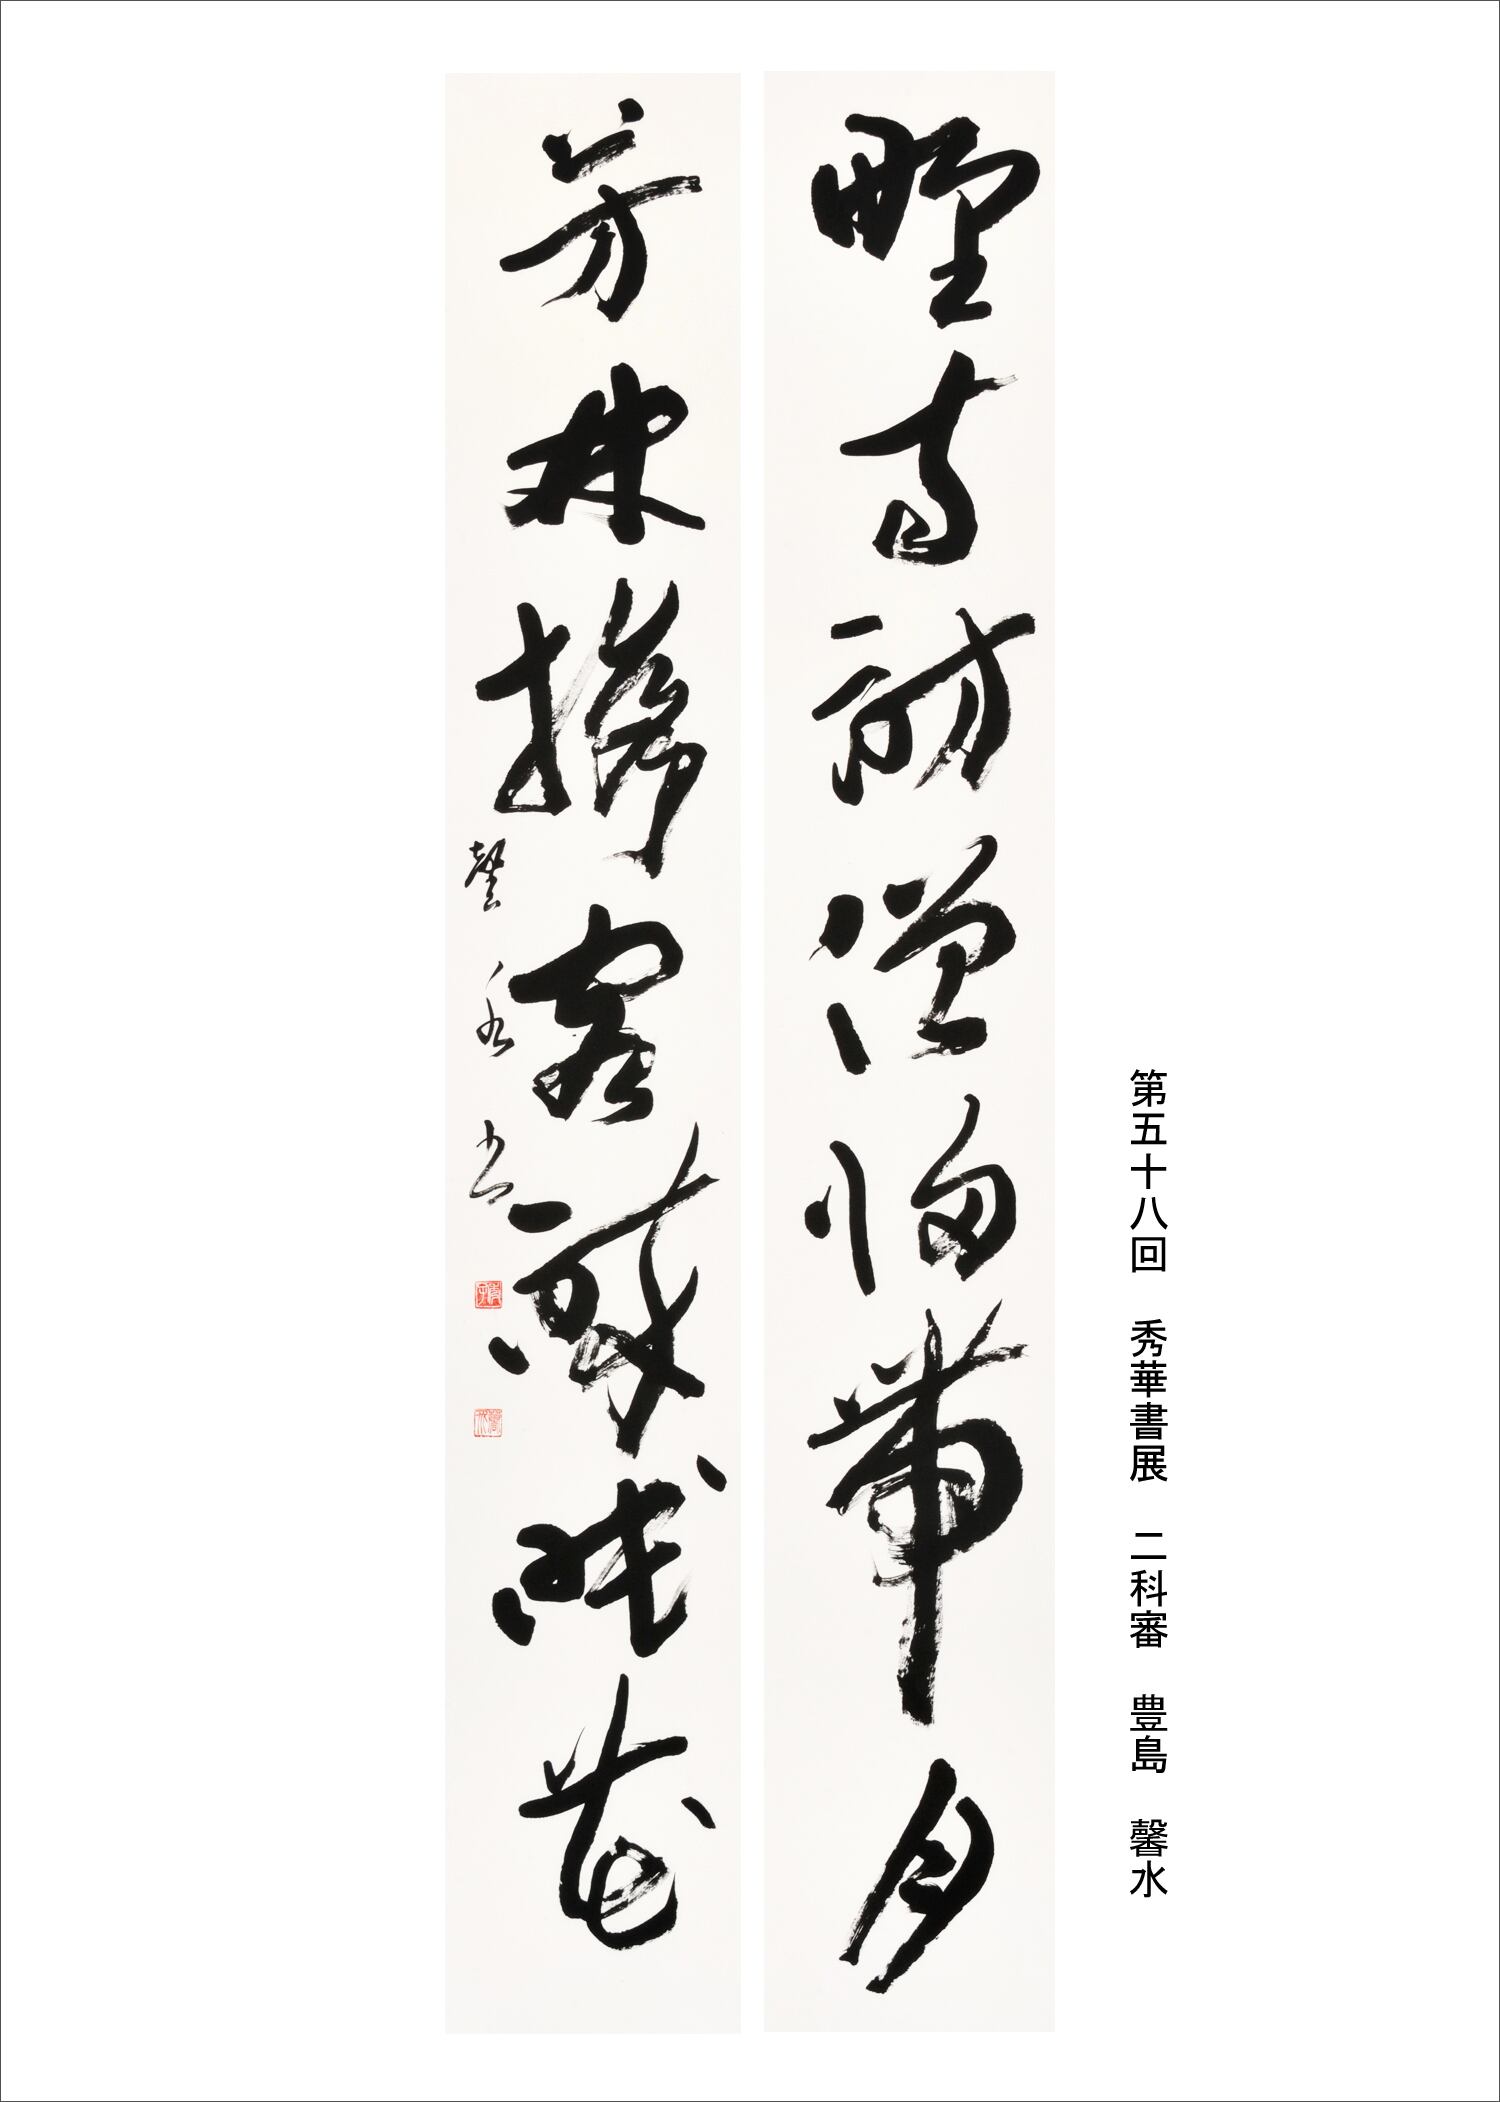 第五十八回 秀華書展 二科審 豊島 馨水
野寺訪僧帰帯月
芳林携客酔眠花
馨水書